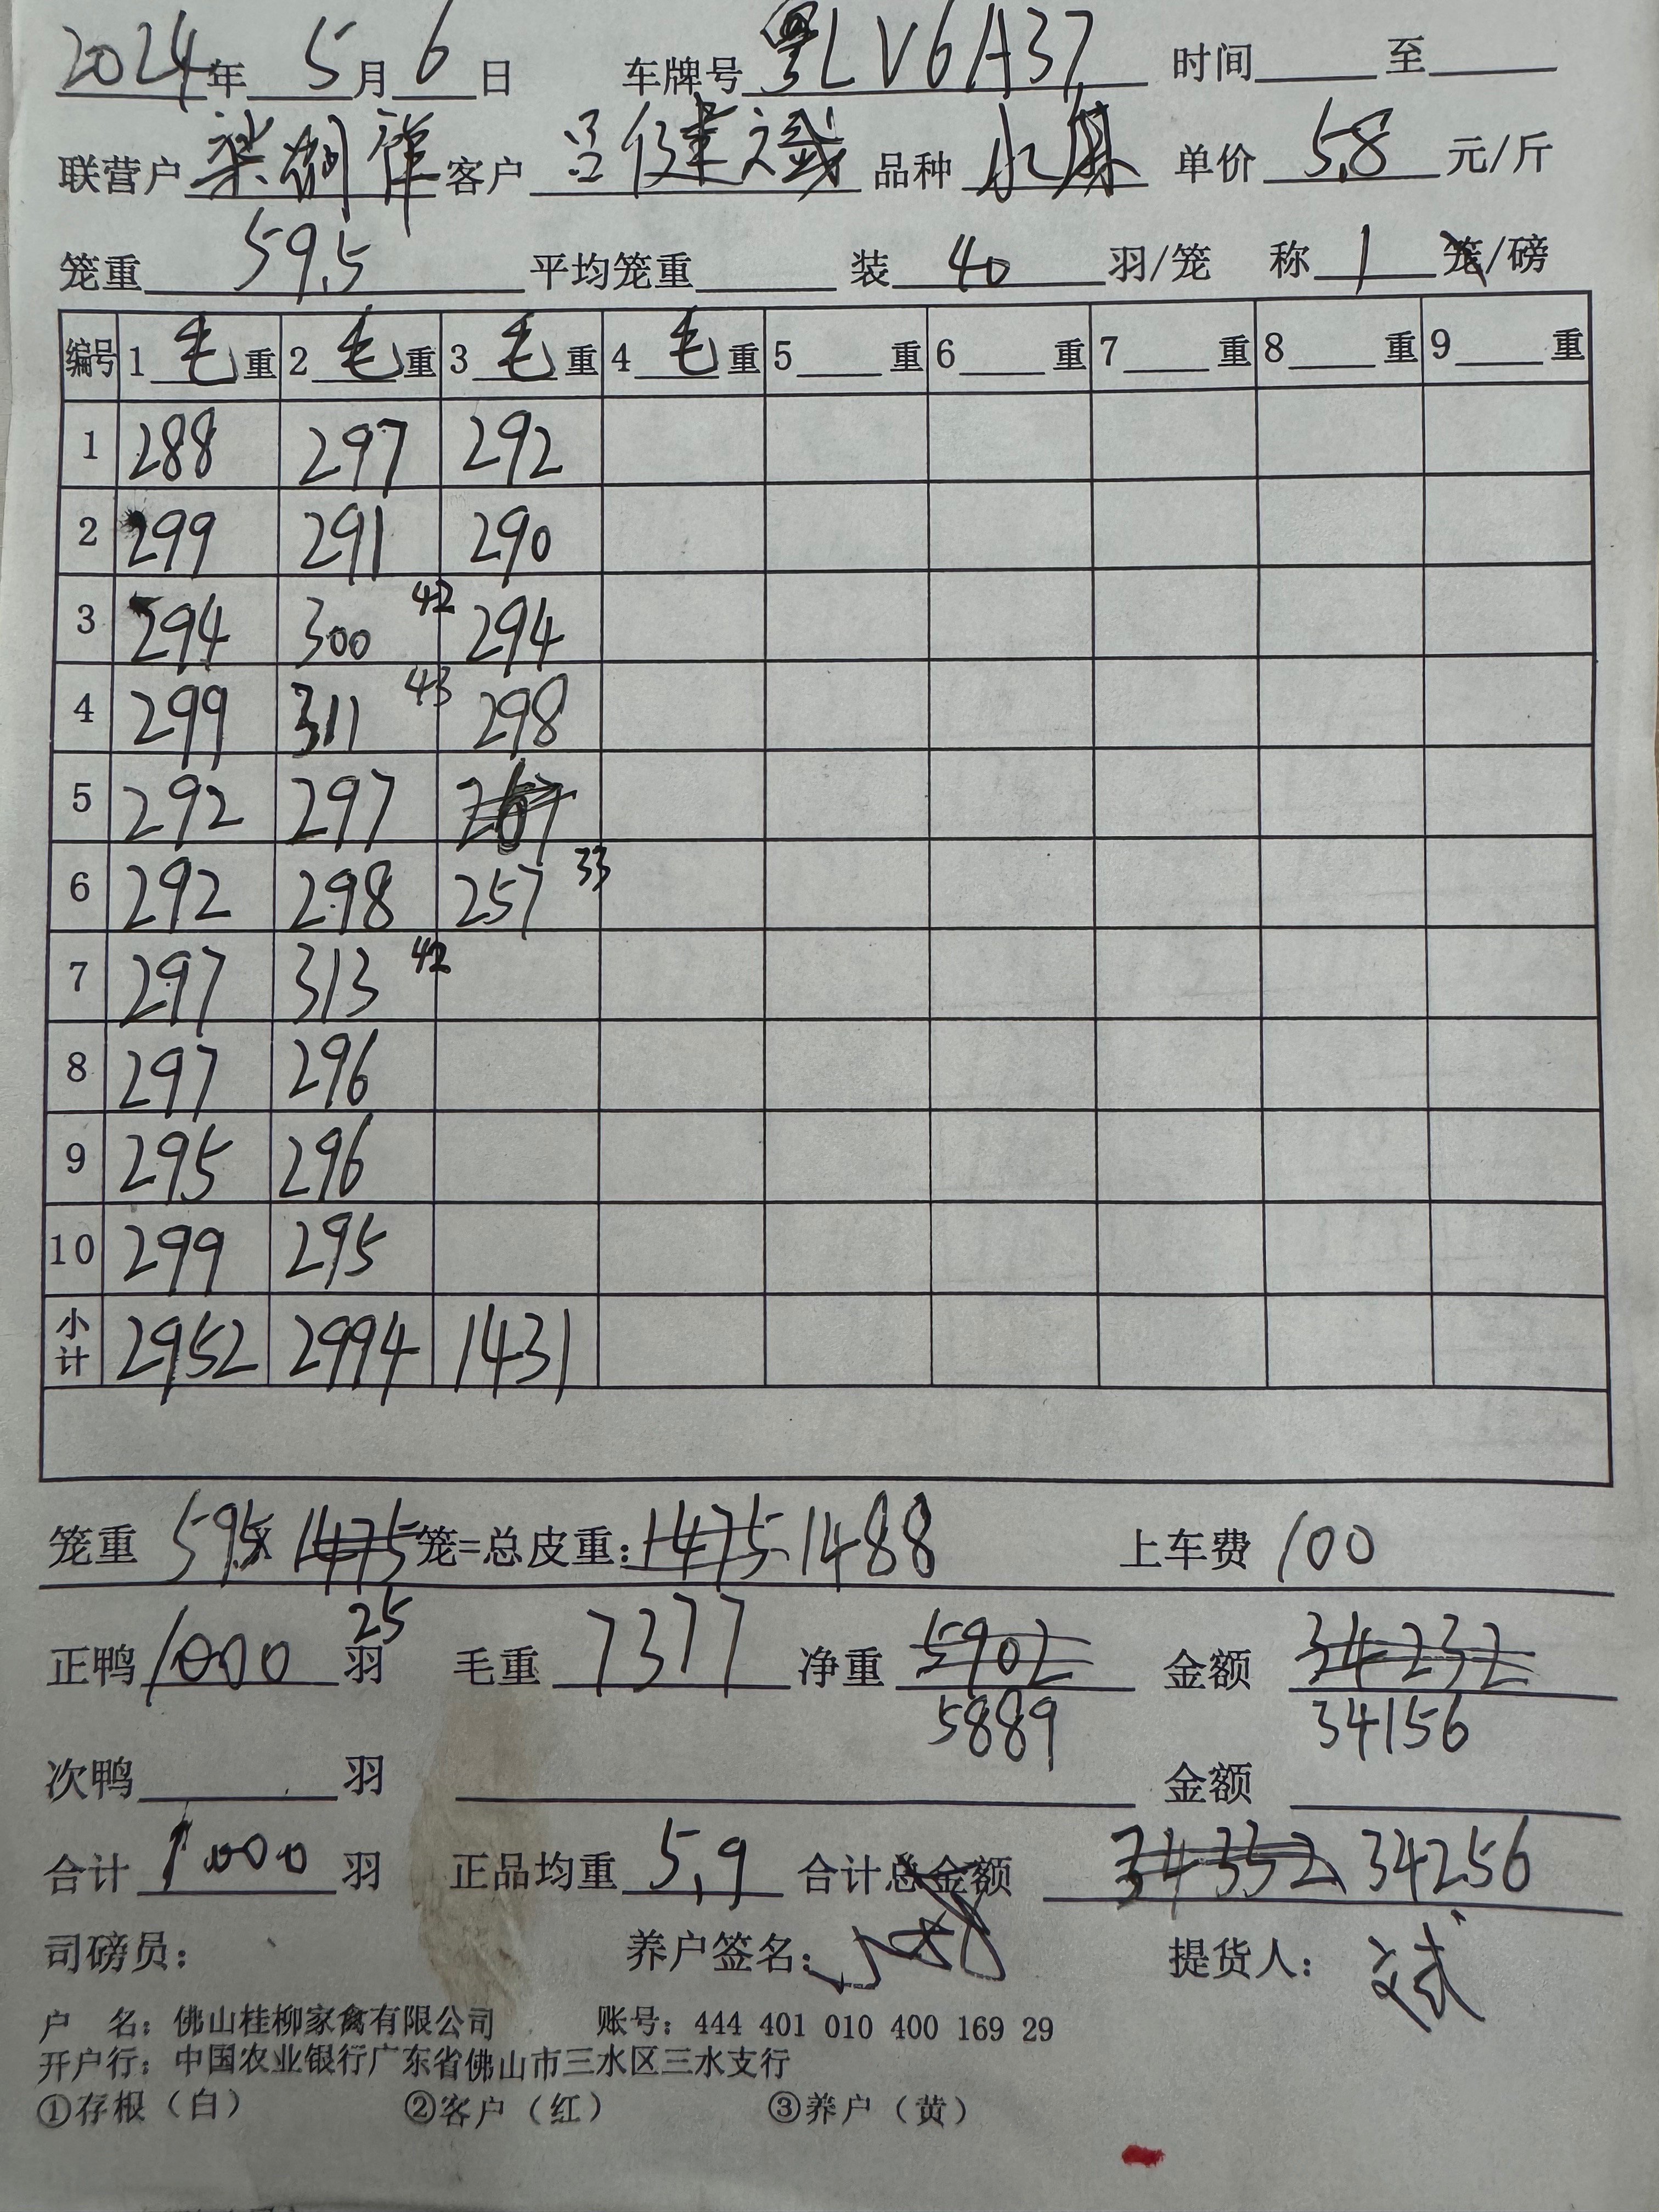 2024年 5月 6日 车牌号 粤LV6A37 时间 至
联营户 客户 吕健斌 品种 水麻 单价 5.8 元/斤
笼重 59.5 平均笼重 装 40 羽/笼 称 1 笼/磅
编号 1 毛 重 2 毛 重 3 毛 重 4 毛 重 5 重 6 重 7 重 8 重 9 重
1 288 297 292
2 299 291 290
3 294 300 42 294
4 299 311 43 298
5 292 297
6 292 298 257 33
7 297 313 42
8 297 296
9 295 296
10 299 295
小计 2952 2994 1431
笼重 59.5 x 1475 笼=总皮重: 1475 1488 上车费 100
25
正鸭 1000 羽 毛重 7377 净重 5902 金额 34232
5889 34156
次鸭 羽 金额
合计 1000 羽 正品均重 5.9 合计总金额 34352 34256
司磅员: 养户签名: 提货人: 斌
户 名: 佛山桂柳家禽有限公司 账号: 444 401 010 400 169 29
开户行: 中国农业银行广东省佛山市三水区三水支行
①存根（白） ②客户（红） ③养户（黄）